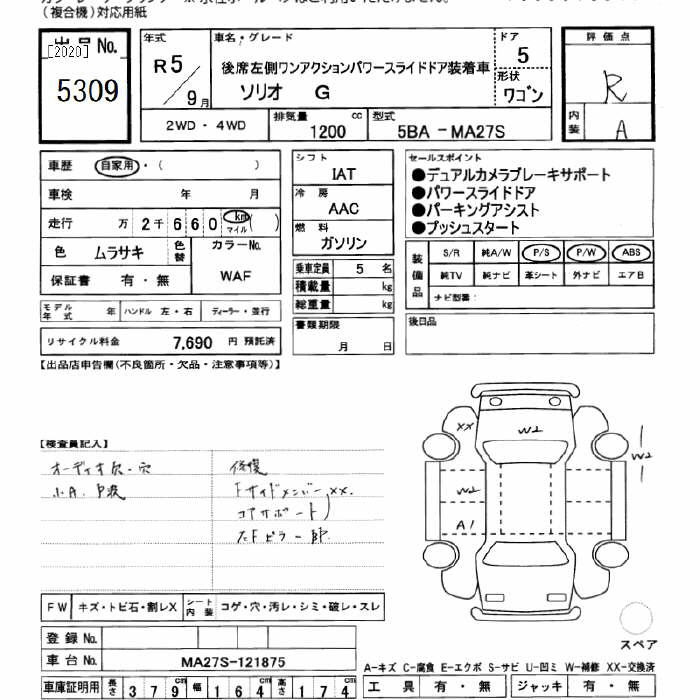 （複合機）対応用紙
出品No.
[2020]
5309
年式
R5
9月
車名・グレード
後席左側ワンアクションパワースライドドア装着車
ソリオ G
ドア
5
形状
ワゴン
評価点
R
内装
A
2WD・4WD
排気量
1200 cc
型式
5BA－MA27S
車歴 自家用・（ ）
車検 年 月
走行 万 2千 6 6 0 km マイル ( )
色 ムラサキ
色替
カラーNo.
WAF
保証書 有・無
モデル年式 年
ハンドル 左・右
ディーラー・並行
リサイクル料金 7,690 円 預託済
シフト
IAT
冷房
AAC
燃料
ガソリン
乗車定員 5 名
積載量 kg
総重量 kg
書類期限
月 日
セールスポイント
●デュアルカメラブレーキサポート
●パワースライドドア
●パーキングアシスト
●プッシュスタート
装備品
S/R 純A/W P/S P/W ABS
純TV 純ナビ 革シート 外ナビ エアB
ナビ型番：
後日品
【出品店申告欄（不良箇所・欠品・注意事項等）】
【検査員記入】
オーディオ欠・穴
小A.P波
修復
Fサイドメンバー,XX.
コアサポート)
左Fピラー
XX
W2
W2
W2
A1
FW キズ・トビ石・割レX
シート内装 コゲ・穴・汚レ・シミ・破レ・スレ
登録No.
車台No. MA27S-121875
車庫証明用 長さ 379cm 幅 164cm 高さ 174cm
スペア
A－キズ C－腐食 E－エクボ S－サビ U－凹ミ W－補修 XX－交換済
工具 有・無
ジャッキ 有・無